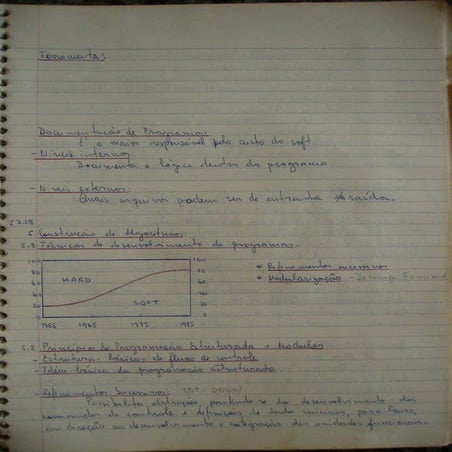 Ferramenta:
Documentação de Programas:
É o maior responsável pelo custo do soft.
- Níveis internos:
Documenta a lógica dentro do programa.
- Níveis externos:
Quais arquivos podem ser de entrada saída.
27.08
5 Construção de Algoritmos:
5.1 Técnicas de desenvolvimento de programas.
100 100
80 80
60 60
40 40
20 20
0 0
HARD
SOFT
1955 1965 1975 1985
- Refinamentos sucessivos
- Modularização - Decomp. Funcional
5.2 Princípios de Programação Estruturada e Modular
- Estruturas básicas de fluxo de controle
- Idéia básica da programação estruturada
- Refinamentos Sucessivos: TOP-DOWN
Possibilita abstração, partindo-se do desenvolvimento dos
comandos de controle e definição de dados iniciais, para baixo,
em direção ao desenvolvimento e integração das unidades funcionais.